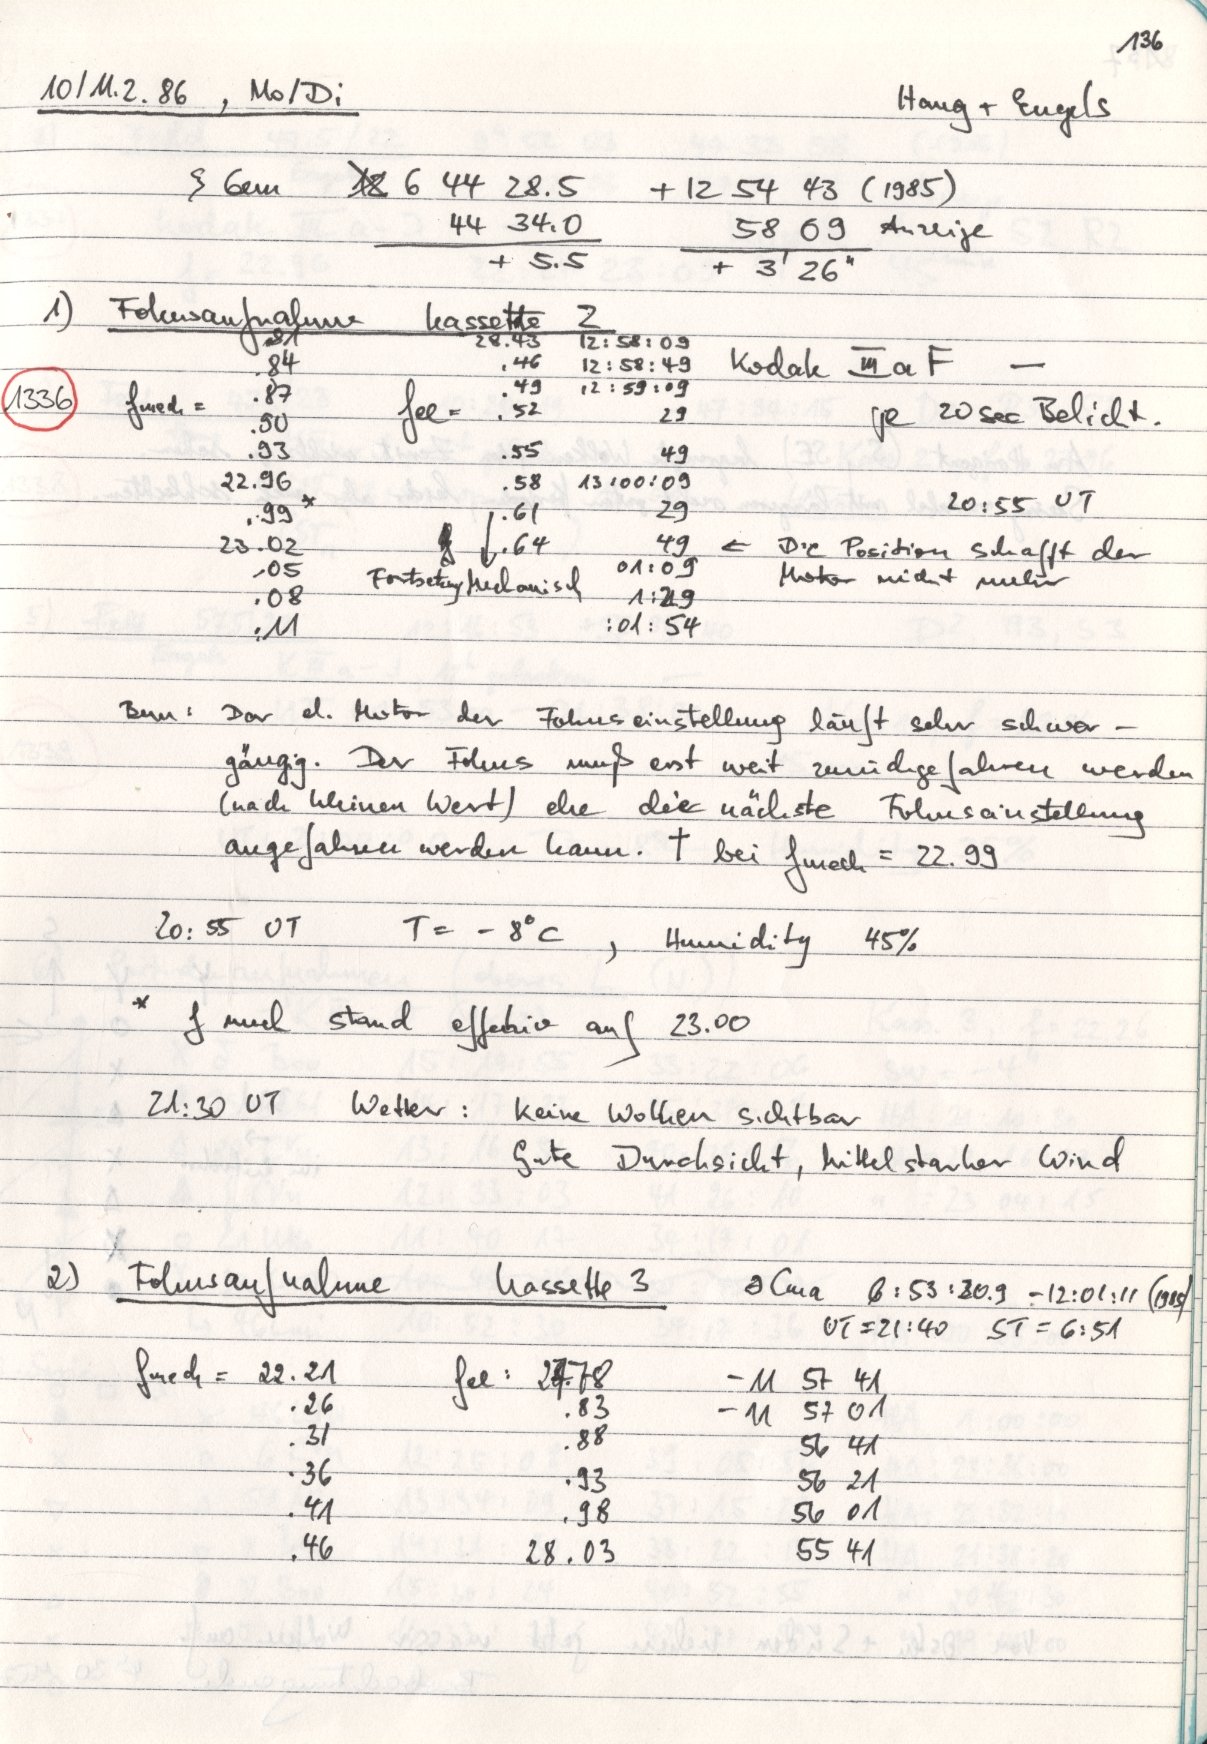 136
10/11.2.86, Mo/Di
Haug + Engels
ξ Gem 6 44 28.5 + 12 54 43 (1985)
44 34.0 58 09 Anzeige
+ 5.5 + 3' 26"
1) Fokusaufnahme Kassette 2
.81 28.43 12:58:09
.84 .46 12:58:49 Kodak III a F —
1336 fmech = .87 fel = .49 12:59:09
.90 .52 29 je 20 sec Belicht.
.93 .55 49
22.96 .58 13:00:09
.99 * .61 29 20:55 UT
23.02 ↓ .64 49 ← Die Position schafft der
.05 Fortsetzung Mechanisch 01:09 Motor nicht mehr
.08 1:29
.11 :01:54
Bem: Der el. Motor der Fokuseinstellung läuft sehr schwer-
gängig. Der Fokus muß erst weit zurückgefahren werden
(nach kleinen Wert) ehe die nächste Fokuseinstellung
angefahren werden kann. † bei fmech = 22.99
20:55 UT T = - 8°C , Humidity 45%
* f mech stand effektiv auf 23.00
21:30 UT Wetter: Keine Wolken sichtbar
Gute Durchsicht, Mittelstarker Wind
2) Fokusaufnahme Kassette 3 θ Cma 6:53:30.9 -12:01:11 (1985)
UT = 21:40 ST = 6:51
fmech = 22.21 fel: 27.78 - 11 57 41
.26 .83 - 11 57 01
.31 .88 56 41
.36 .93 56 21
.41 .98 56 01
.46 28.03 55 41